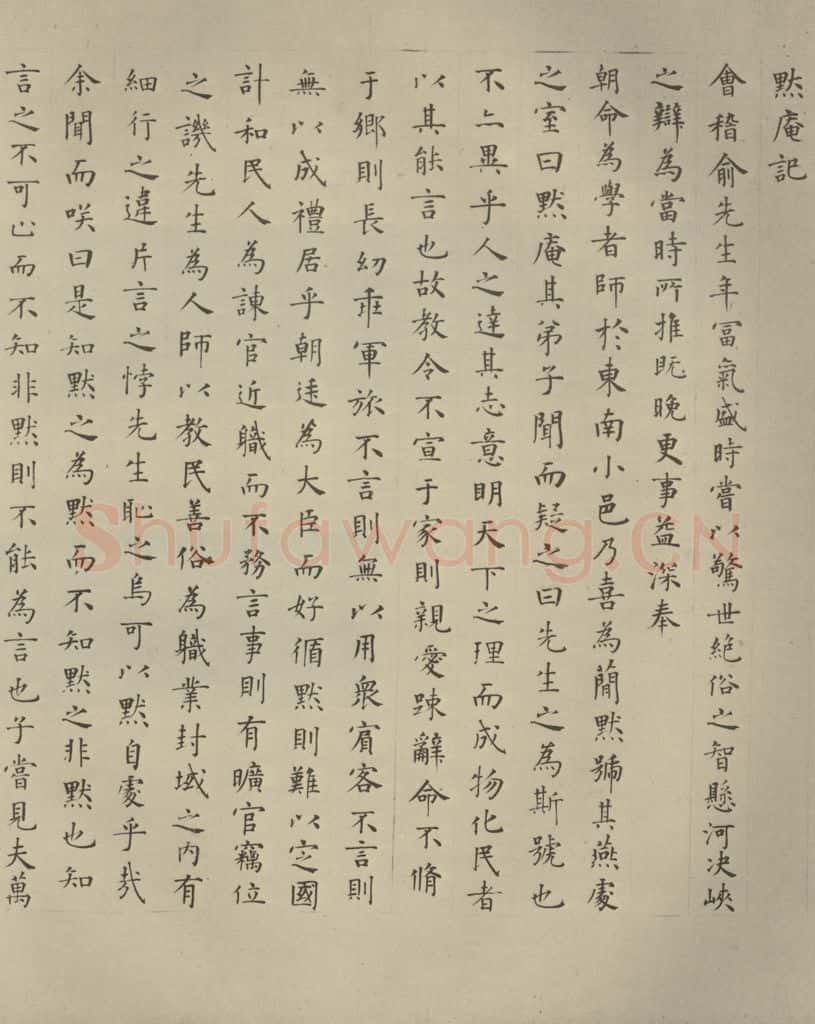 默庵記
會稽俞先生年富氣盛時嘗以驚世絶俗之智懸河决峽
之辯為當時所推既晚更事益深奉
朝命為學者師於東南小邑乃喜為簡默號其燕處
之室曰默庵其弟子聞而疑之曰先生之為斯號也
不亦異乎人之達其志意明天下之理而成物化民者
以其能言也故教令不宣于家則親愛踈辭命不脩
于鄉則長幼乖軍旅不言則無以用衆賓客不言則
無以成禮居乎朝廷為大臣而好循默則難以定國
計和民人為諫官近職而不務言事則有曠官竊位
之譏先生為人師以教民善俗為職業封域之内有
細行之違片言之悖先生恥之烏可以默自處乎哉
余聞而咲曰是知默之為默而不知默之非默也知
言之不可已而不知非默則不能為言也子嘗見夫萬
Shufawang.CN